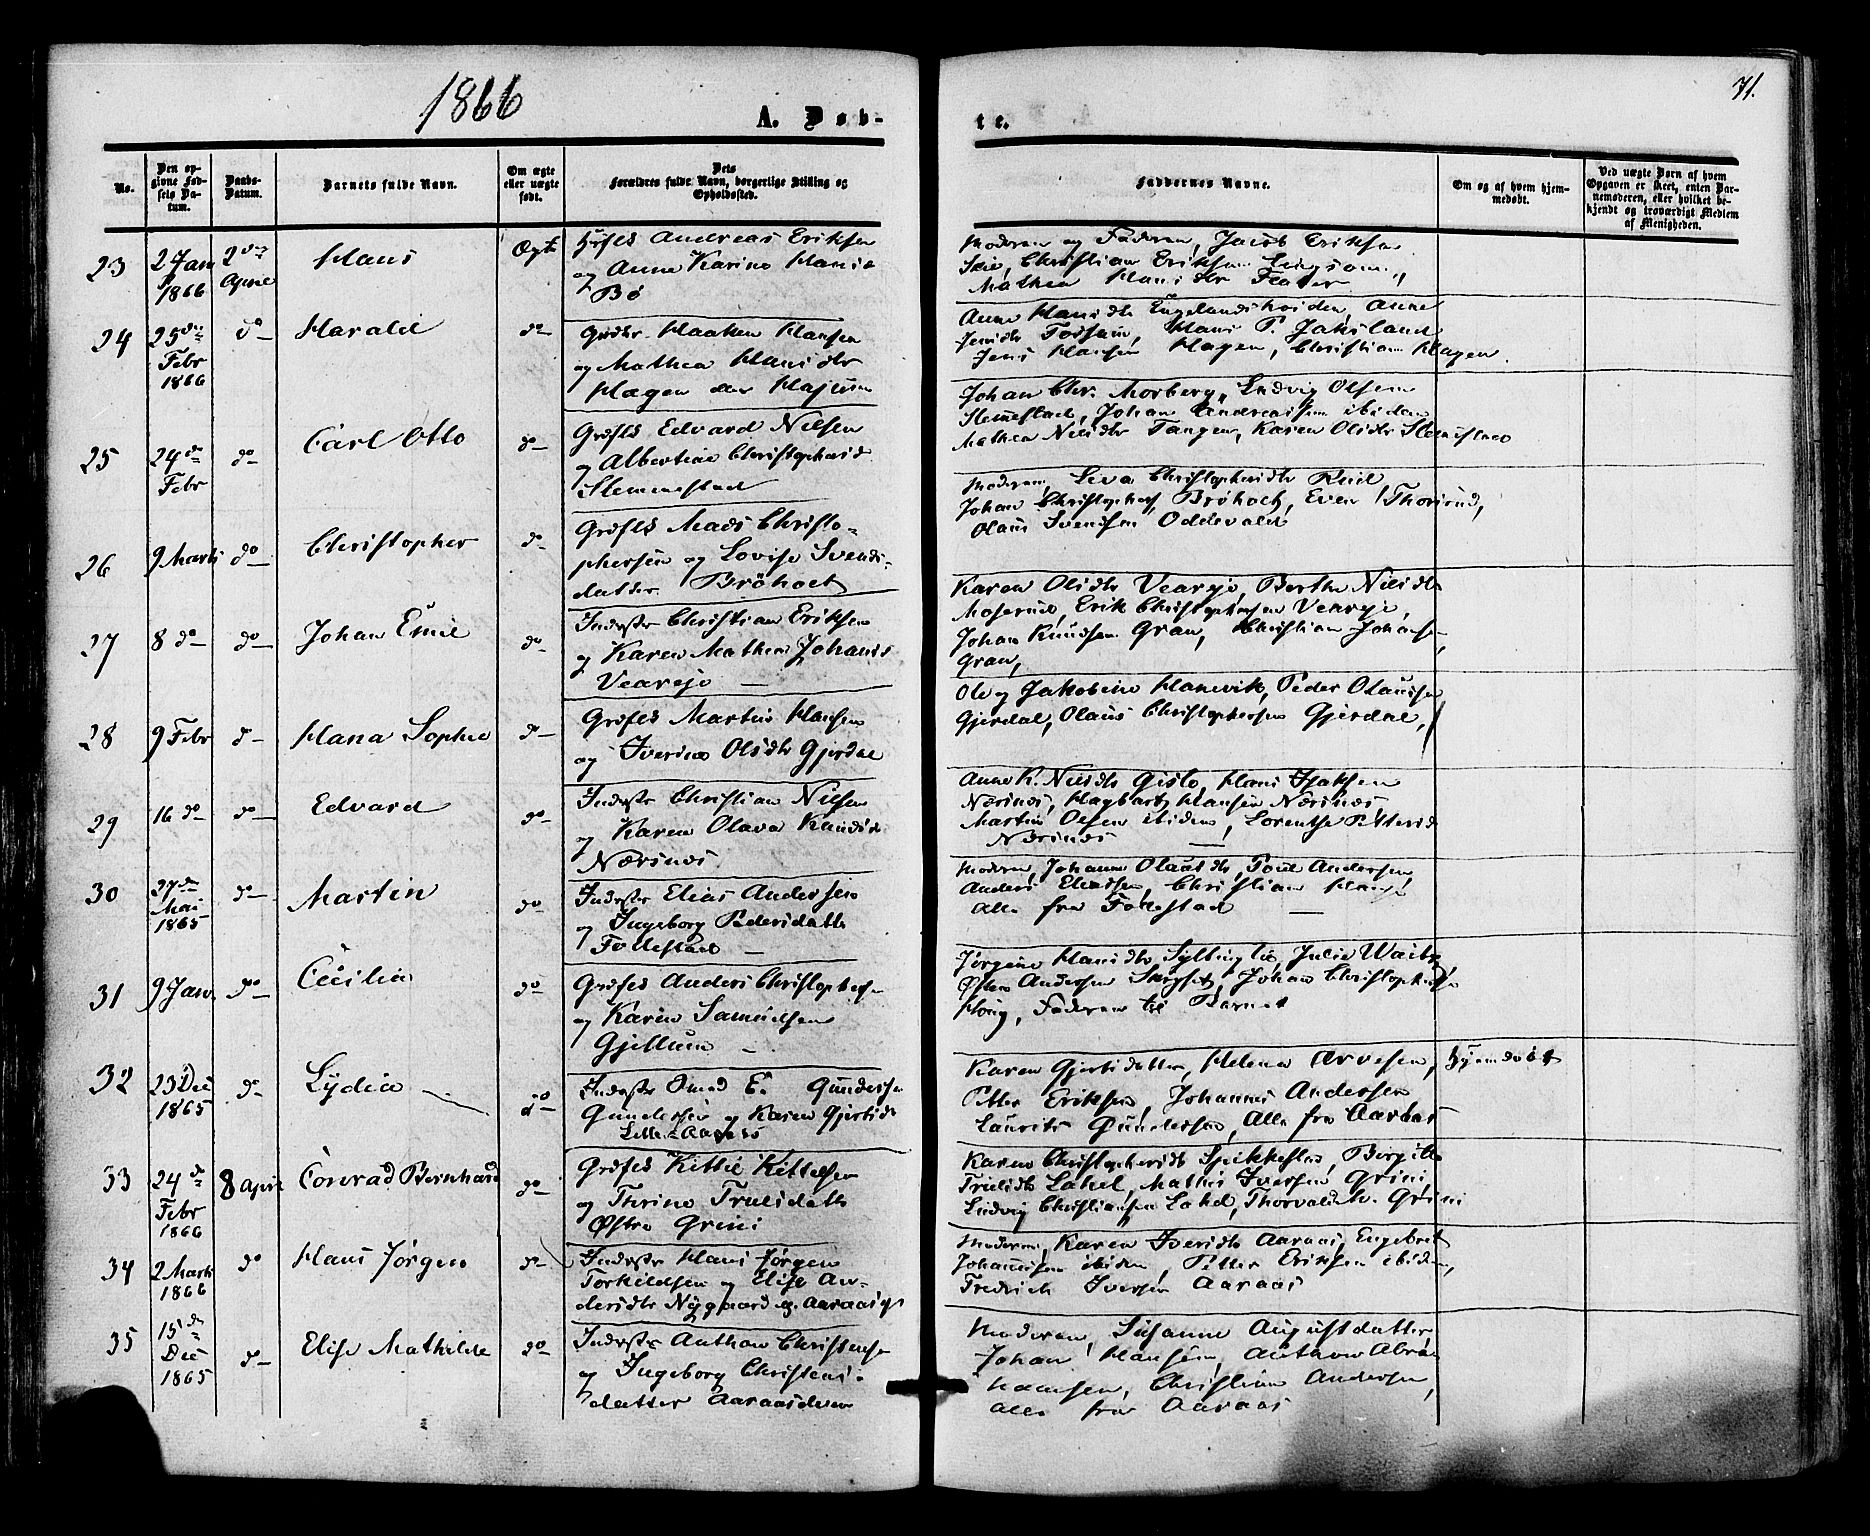 1866
A. Døb-
te.
71.
No.
Den op-
givne Fød-
sels Da-
tum.
Daabs-
Datum.
Barnets fulde Navn.
Om ægte
eller uægte
født.
Dets
Forældres fulde Navn, borgerlige Stilling og
Opholdssted.
Faddernes Navne.
Om og af hvem hjem-
medøbt.
Ved uægte Børn af hvem
Opgaven er skeet, enten Bar-
nemoderen, eller hvilket be-
kjendt og troværdigt Medlem
af Menigheden.
23
2 Jan
1866
2den
April
Hans
Ægte
Andreas Eriksen
og Anne Karine Hansd
Bø
Moderen og Faderen, Jacob Eriksen
Christian Eriksen
Mathea Hansdtr
24
25de
Febr
1866
do
Harald
do
Haaken Hansen
og Mathea Hansdtr
Hagen
Anne Hansdtr Engelandskroiden, Anne
Jensdtr Torsam, Hans P. Jaksland
Jens Hansen Hagen, Christian Hagen.
25
24de
Febr
do
Carl Otto
do
Grdfls Edvard Nilsen
og Albertine Christophersd
Slemmestad
Johan Chr. Morberg, Ludvig Olsen
Slemestad, Johan Andreassen ibidem
Mathea Nilsdtr Tangen, Karen Olsdtr Slemestad
26
9 Marts
do
Christopher
do
Grdfls Mads Christo-
phersen og Lovise Svends-
datter Brøholt
Moderen, Christophersdtr Ruud
Johan Christophers Brøholt, Even Thorsrud,
Olaus Svendsen Oddevald
27
8 do
do
Johan Emil
do
Inderster Christian Eriksen
og Karen Mathea Johansd
Vearsjø
Karen Olsdtr Vearsjø, Berthe Nilsdtr
Moserud, Erik Christophersen Vearsjø,
Johan Knudsen Gran, Christian Johans-
Gran,
28
9 Febr
do
Hana Sophie
do
Grdfls Martin Hansen
og Iverine Olsdtr Gjerdal
Ole og Jakobine Hanevik, Peder Olaussen
Gjerdal, Olaus Christophersen Gjerdal,
29
16 do
do
Edvard
do
Inderster Christian Nilsen
og Karen Olava Knudsd
Nærsnes
Anne K. Nilsdtr Gislø, Hans Isaksen
Nærsnes, Hagbart Hansen Nærsnes
Martin Olsen ibidem, Lorentse Pettersd
Nærsnes
30
27de
Mai
1865
do
Martin
do
Inderster Elias Andersen
og Ingeborg Pedersdatt
Follestad
Moderen, Johanne Olausdtr, Poul Andersen
Anders Eliassen, Christian
Alle fra Follestad
31
9 Jan.
do
Cecilia
do
Grdfls Anders Christophersen
og Karen Samuelsen
Gjellum
Jørgine Hansdtr Syltingli, Julie
Østen Andersen Skryset, Johan Christophersen
Høug, Faderen til Barnet
32
23 Dec
1865
do
Lydia
do
Inderster E. Gundersen
Gundersen og Karen Gjertsdtr
Lille Aaraas
Karen Gjertsdatter, Helena Arvesen,
Petter Eriksen, Johannes Andersen
Laurits Gundersen, Alle fra Aaraas
hjemdøbt
33
24de
Febr
1866
8 April
Conrad Bernhard
do
Grdfls Kittil Kittelsen
og Thrine Trulsdatt
Østre Grini
Karen Christophersdt Spikkestad, Birgitte
Trulsdtr Lahel, Mathis Iversen Grini,
Ludvig Christiansen Lahel, Thorvald K. Grini
34
2 Marts
1866
do
Hans Jørgen
do
Inderster Hans Jørgen
Torkildsen og Elise An-
dersdtr Nygaard og Aaraas
Moderen, Karen Iversdtr Aaraas, Engebret
Johannsen ibidem, Petter Eriksen ibidem,
Fredrich Iversen Aaraas
35
15de
Dec
1865
do
Elise Mathilde
do
Inderster Anthon Christensen
og Ingeborg Christens-
datter Aaraas
Moderen, Susanne Augustdatter,
Johan Hansen, Anthon Abra-
hamsen, Christian Andersen,
Alle fra Aaraas